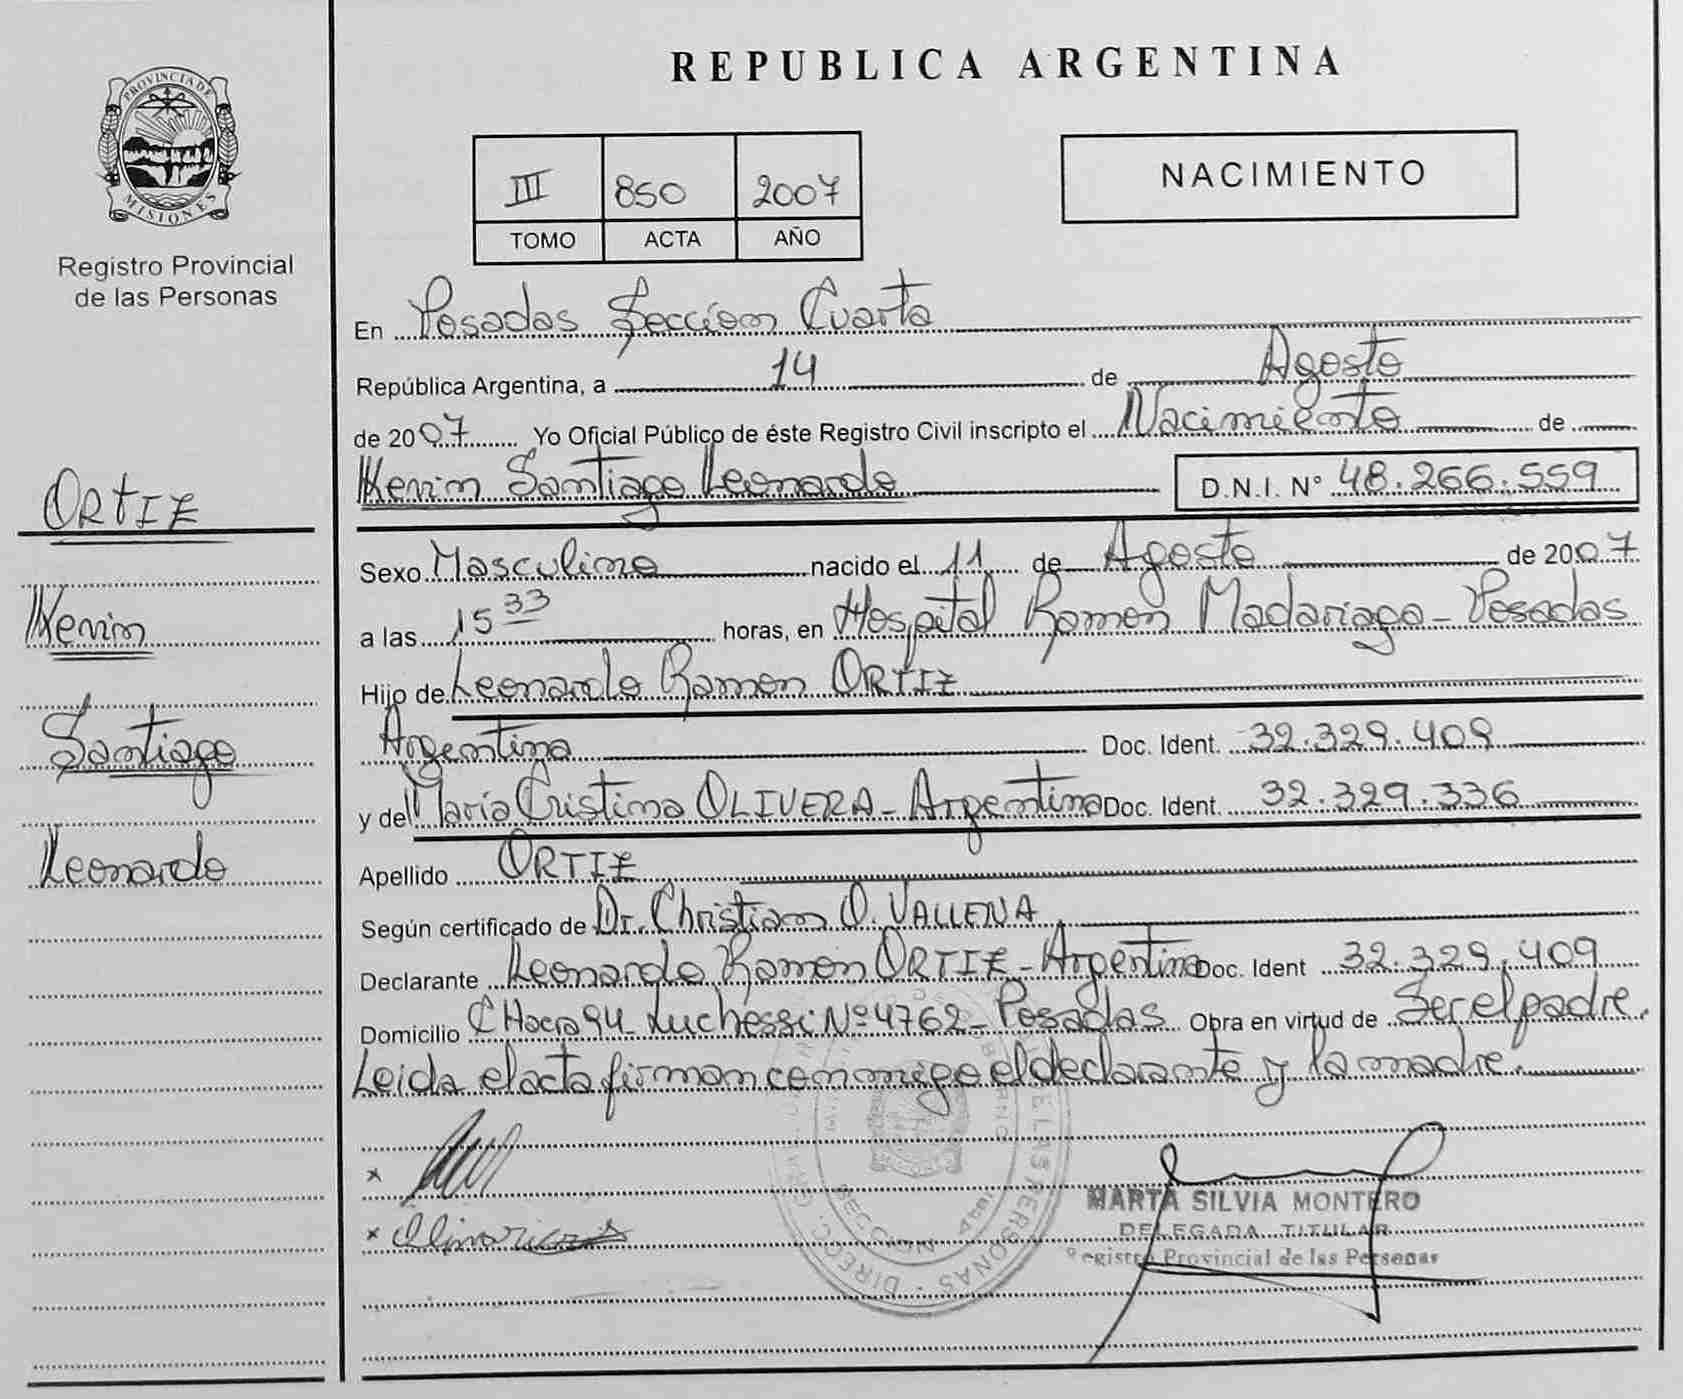 PROVINCIA DE
MISIONES
Registro Provincial
de las Personas
ORTIZ
Kevin
Santiago
Leonardo
REPUBLICA ARGENTINA
III 850 2007
TOMO ACTA AÑO
NACIMIENTO
En Posadas Sección Cuarta
República Argentina, a 14 de Agosto
de 2007 Yo Oficial Público de éste Registro Civil inscripto el Nacimiento de
Kevin Santiago Leonardo D.N.I. N° 48.266.559
Sexo Masculino nacido el 11 de Agosto de 2007
a las 15 33 horas, en Hospital Ramón Madariaga - Posadas
Hijo de Leonardo Ramón ORTIZ
Argentina Doc. Ident. 32.329.409
y de María Cristina OLIVERA - Argentina Doc. Ident. 32.329.336
Apellido ORTIZ
Según certificado de Dr. Christian O. VALLENA
Declarante Leonardo Ramón ORTIZ - Argentina Doc. Ident 32.329.409
Domicilio CHacra 94 Luchessi Nº 4762 - Posadas Obra en virtud de Ser el padre.
Leida el acta firman conmigo el declarante y la madre.
x
x
MARTA SILVIA MONTERO
DELEGADA TITULAR
Registro Provincial de las Personas